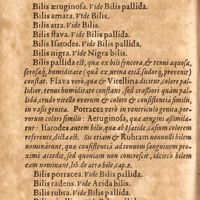 Bilis æruginosa. Vide Bilis pallida.
Bilis amara. Vide Bilis.
Bilis atra. Vide Bilis.
Bilis flava. Vide Bilis pallida.
Bilis Isatodes. Vide Bilis pallida.
Bilis nigra. Vide Nigra bilis.
Bilis pallida est, quæ ex bili syncera, & tenui aquosa,
serosaq́; humiditate (quã ex urina etiã sudorq́; provenit)
constat. Flava verò, quæ & Vitellina dicitur, colore pal-
lida, ac tenui humiditate constans, sed crassiori quàm pal-
lida, crudo vitello ovorum & colore & consistentiã simili,
in vasis genita. Porracea verò in ventriculo, quæ cruda
porro colore similis: Aeruginosa, quæ æruginis assimila-
tur: Isatodes autem bilis, quæ ab Isatide, ipsum colorem
referente, dicta est. Sic etiam & Rubram nonnulli bilem
nominant, quæ consistentiã ad tenuem sanguinem pro-
ximè accedit, sed quoniam non concrescit
eam nominant, lib. de atra bile, cap. 2.
Bilis porracea. Vide Bilis pallida.
Bilis radens. Vide Acida bilis.
Bilis rubra. Vide Bilis pallida.